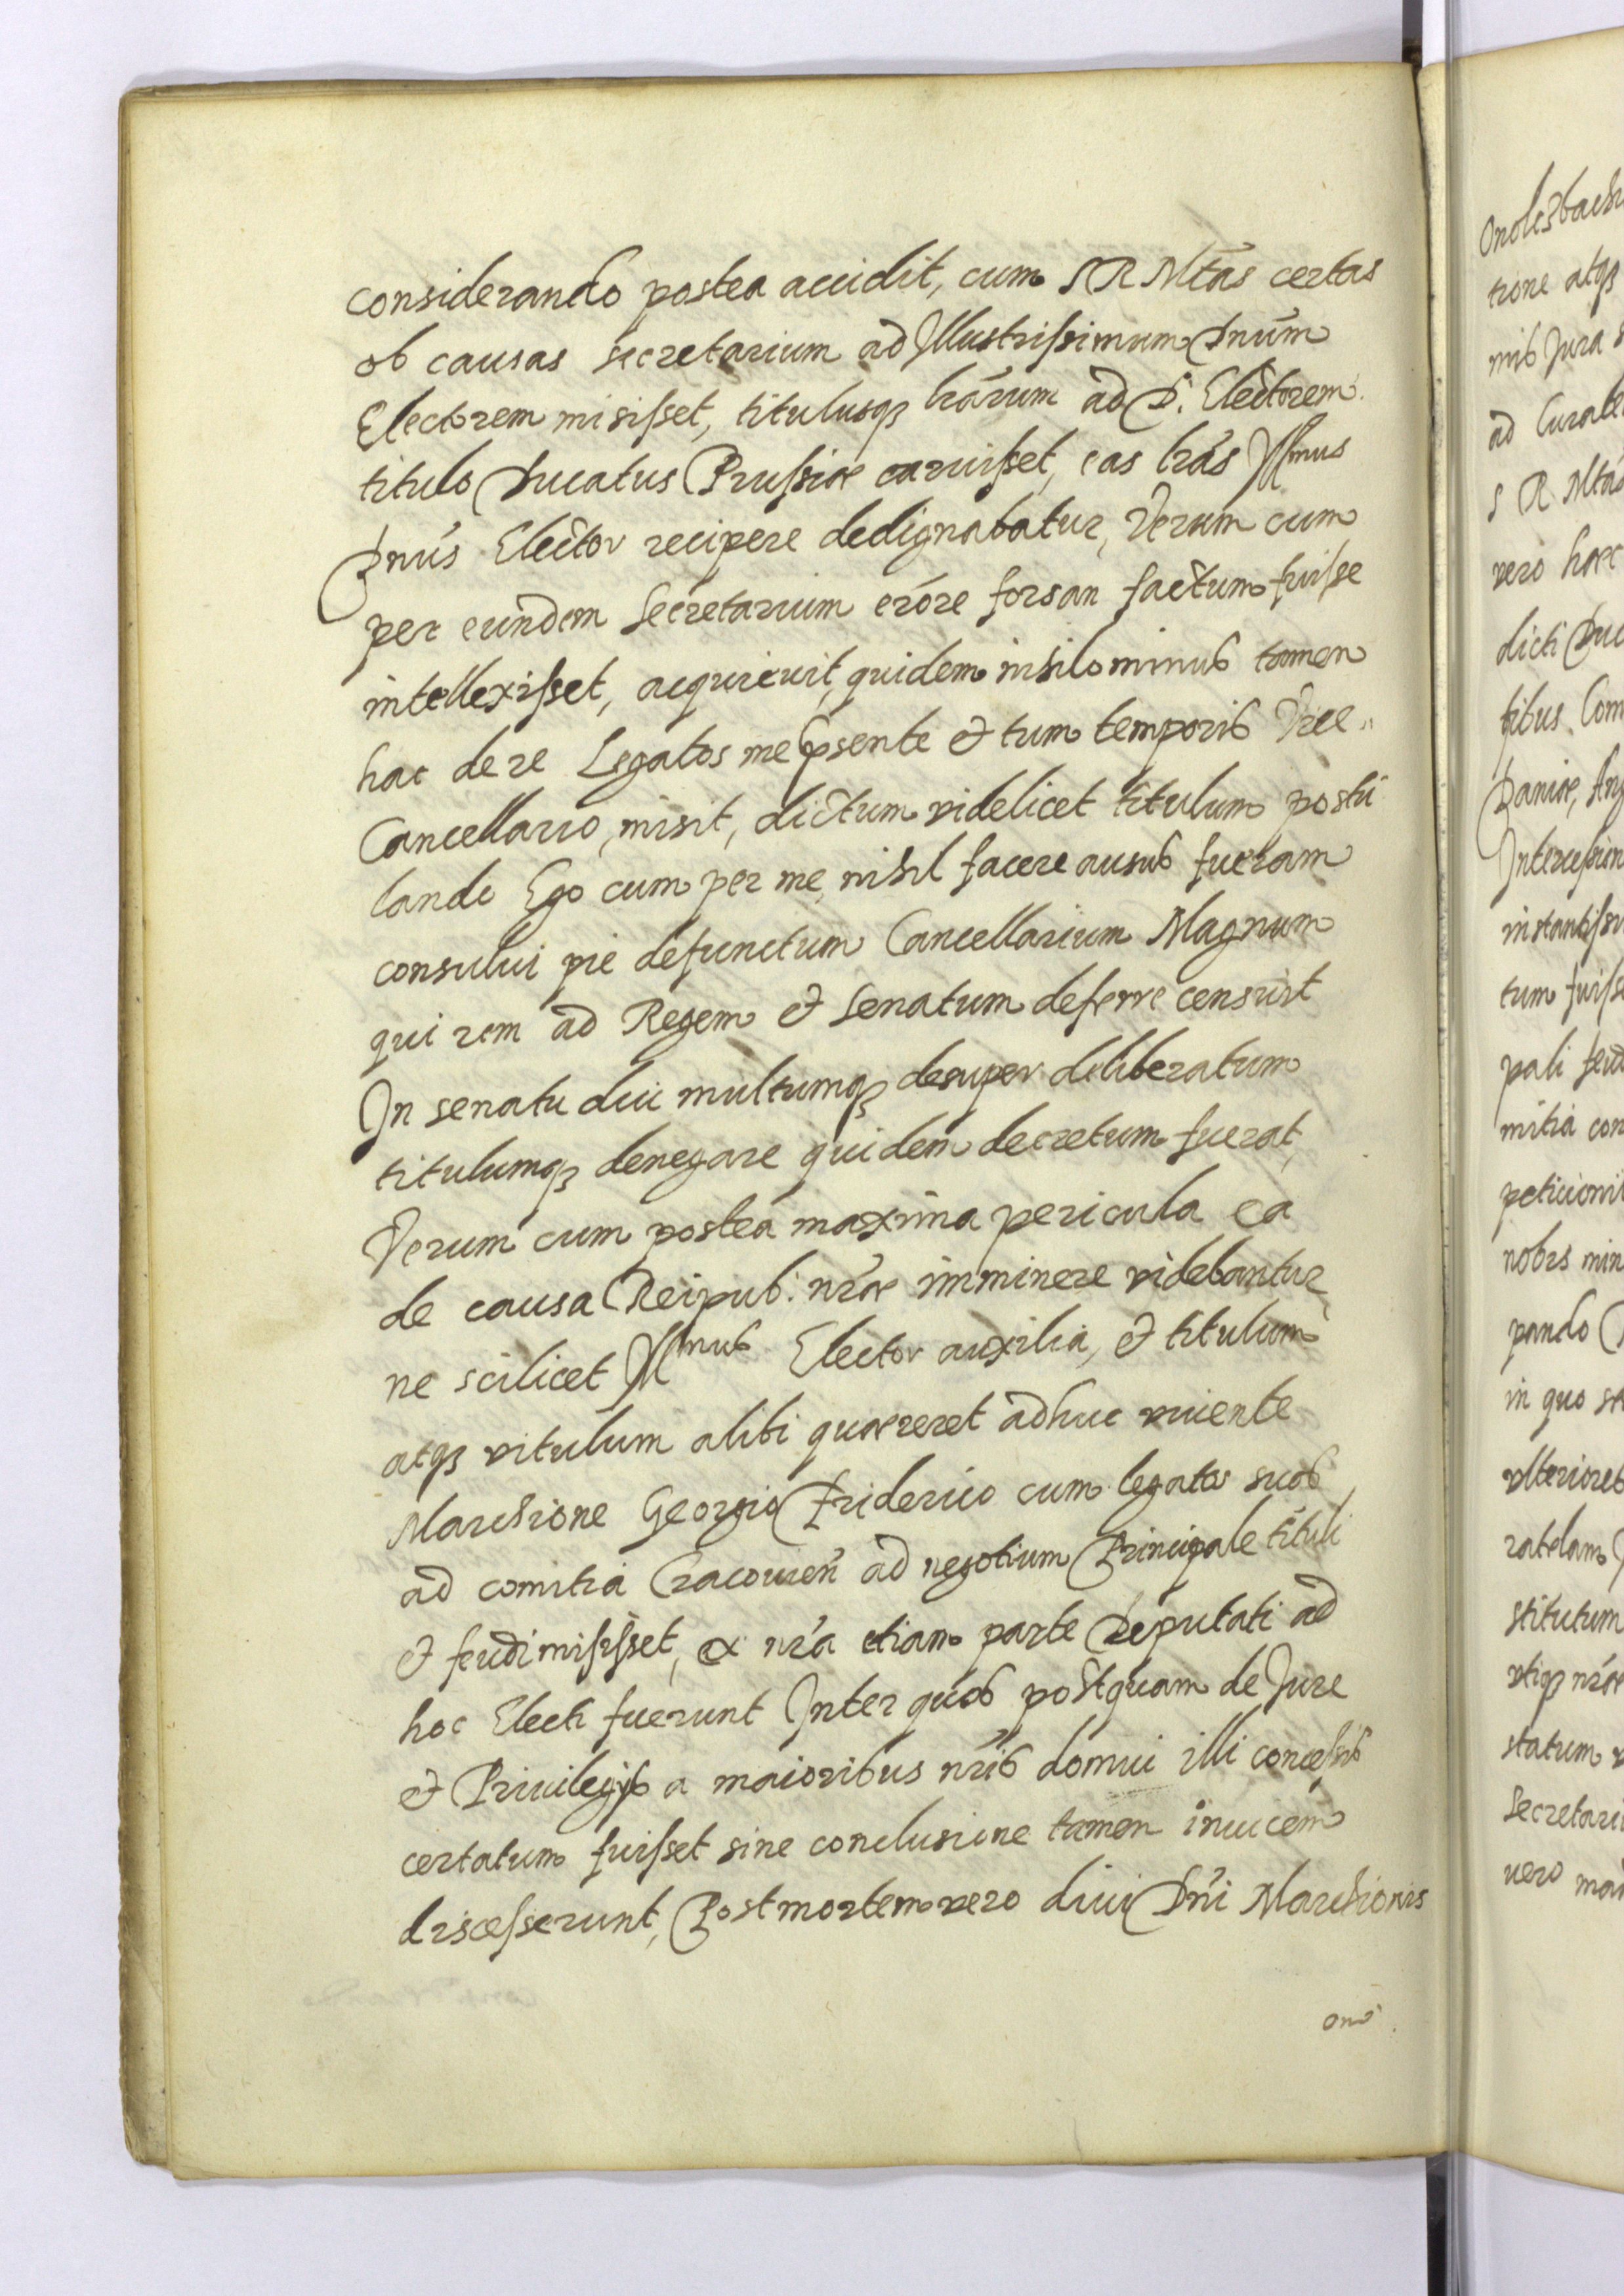 considerando postea accidit, cum S R Mtas certas
ob causas secretarium ad Illustrissimum Dnum
Electorem misisset, titulusq lrarum ad D. Electorem
titulo Ducatus Prussiae caruisset, eas lras Illmus
Dnus Elector recipere dedignabatur, Verum cum
per eundem Secretarium erore forsan factum fuisse
intellexisset, acquieuit, quidem nihilominus tamen
hac de re Legatos me psente et tum temporis Vice-
Cancellario, misit, dictum videlicet titulum postu
lando Ego cum per me, nihil facere ausus fueram
consului pie defunctum Cancellarium Magnum
qui rem ad Regem et Senatum deferre censuit
In senatu diu multumq desuper deliberatum
titulumq denegare quidem decretum fuerat,
Verum cum postea maxima pericula ea
de causa Reipub: nrae imminere videbantur,
ne scilicet Illmus Elector auxilia, et titulum
atq vitulum alibi quaereret adhuc viuente
Marchione Georgio Friderico cum legatos suos
ad comitia Cracouien ad negotium Principale tituli
et feudi misisset, ex nra etiam parte Deputati ad
hoc Electi fuerunt Inter quos postquam de Jure
et Priuilegijs a maioribus nris domui illi concessis
certatum fuisset sine conclusione tamen inuicem
discesserunt, Post mortem vero diui Dni Marchionis
ono
Onolsbachi
tione atq
nis Jura
ad Curate
S R Mtas
vero haec
dicti Duc
tibus Com
Daniae, Ang
Intercession
instantissi
tum fuisse
pali feud
mitia con
peticioni
nobis min
pando
in quo st
vlteriores
ratelam
stitutum
vtiq nrae
statum
Secretari
vero man